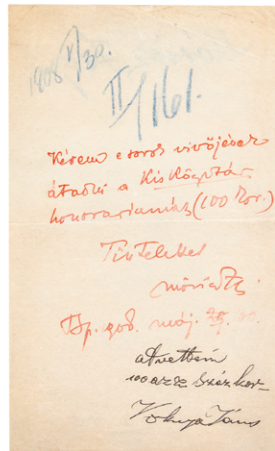 1908 V/30.
II/161.
Kérem e sorok vivőjének
átadni a Kis Közptár
honorariumát (100 kor.)
Tisztelettel
Móricz Zs.
Bp. 908. máj. 30.
átvettem
100 azaz száz kor-
János